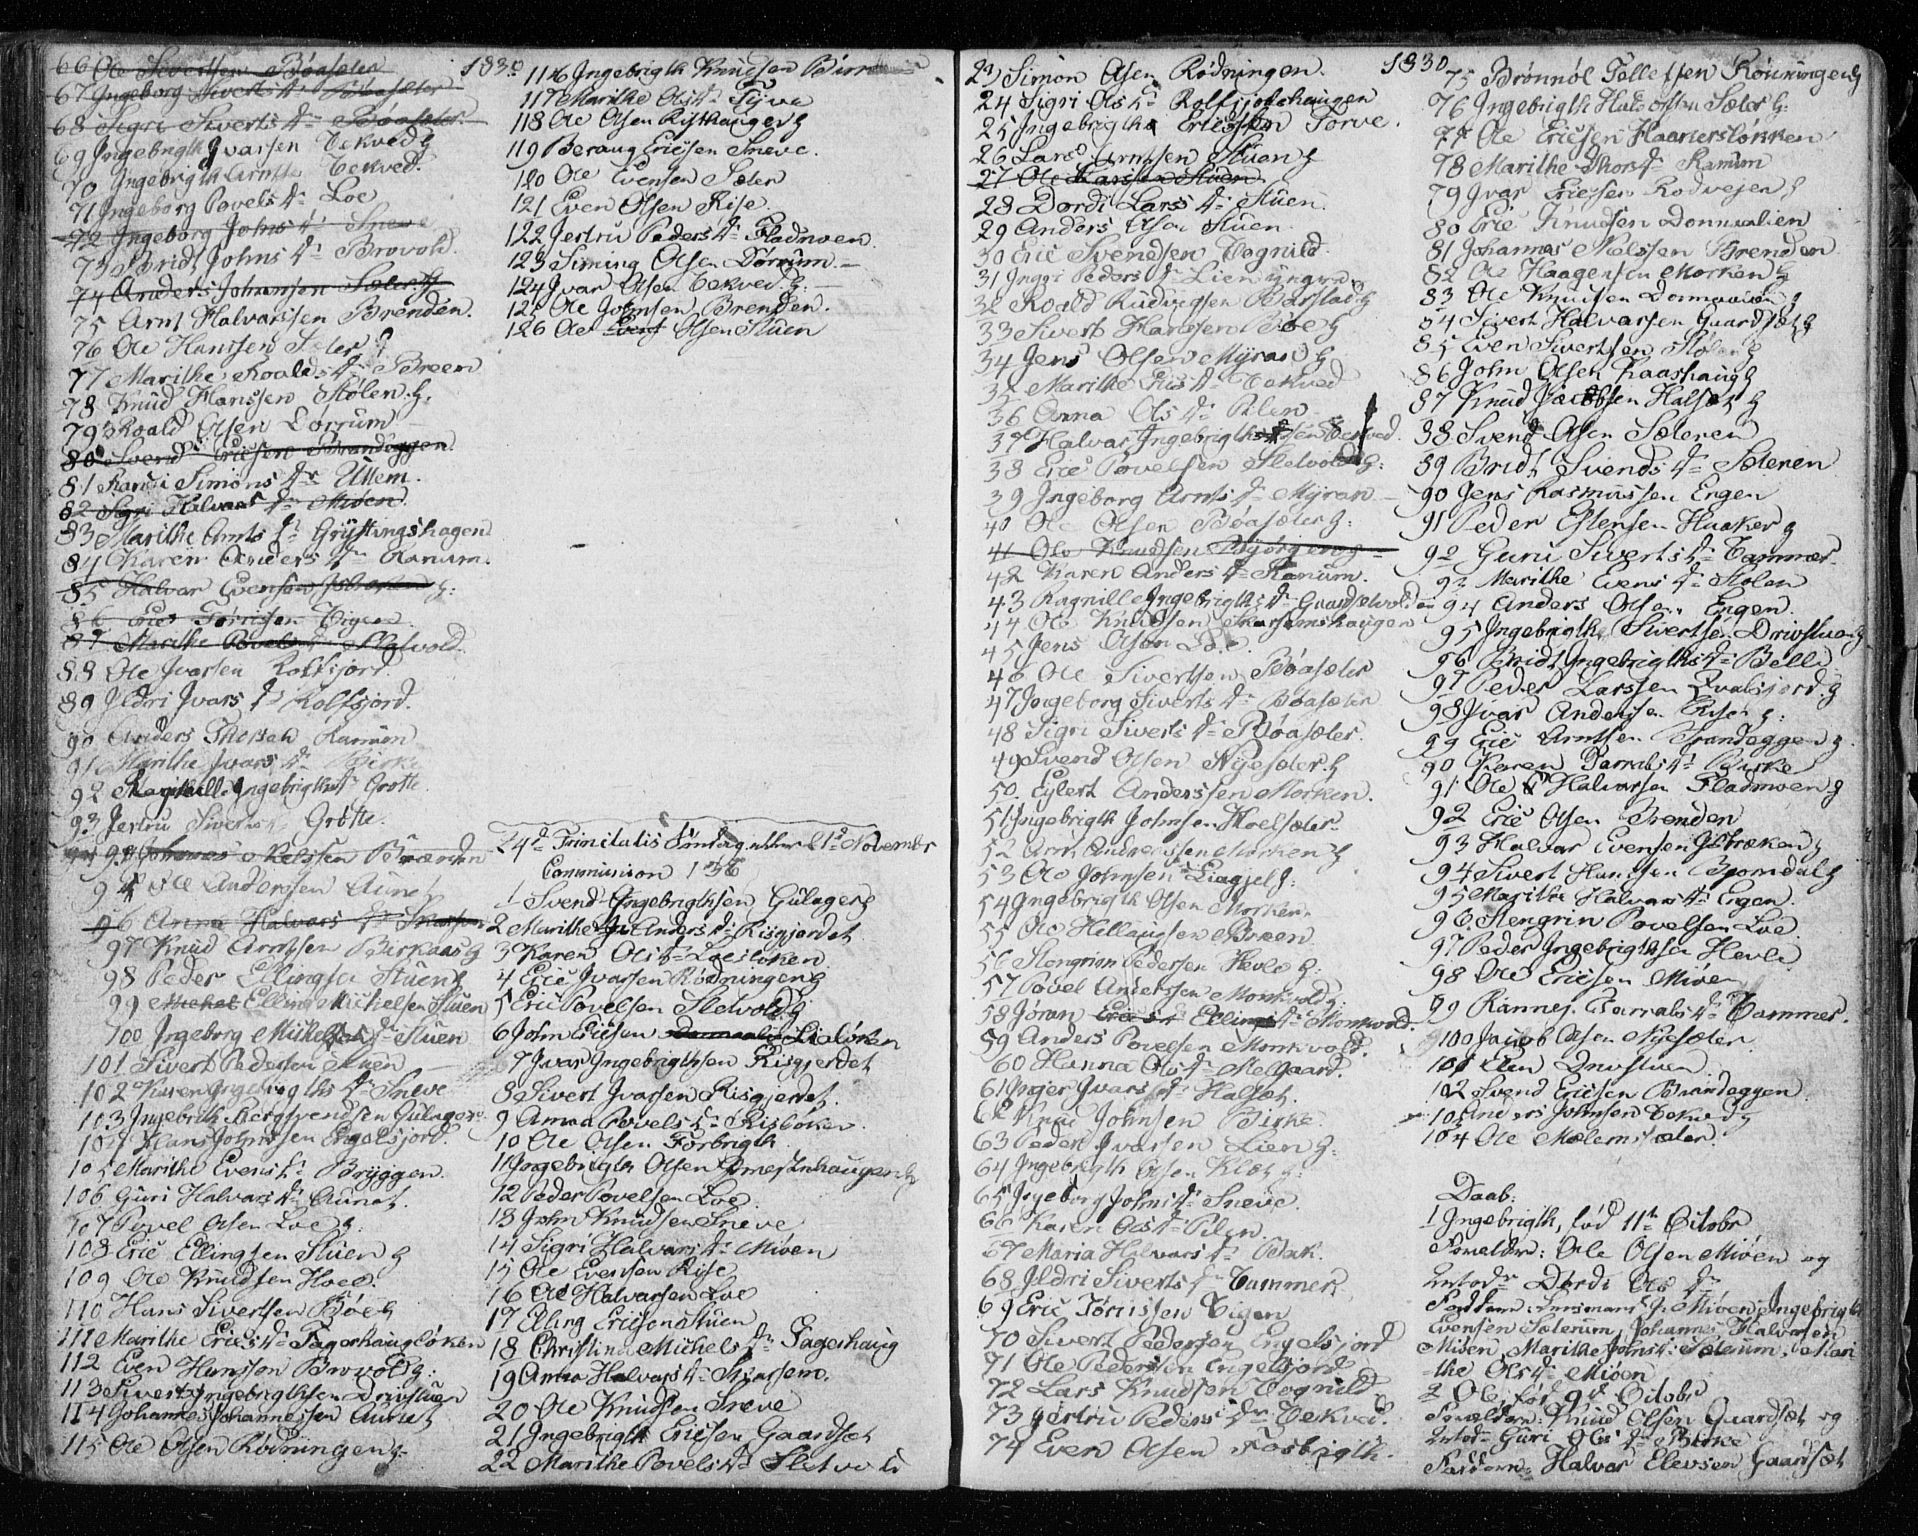 66 Ole Sivertsen Bøasæter
67 Ingeborg Siverts Dr Bøasæter
68 Sigri Siverts Dr Bøasæter
69 Ingebrigth Ivarsen Vekved G
70 Ingebrigth Arnts Vekved.
71 Ingeborg Povels Dr Loe
72 Ingeborg Johns Dr Sneve
73 Bridt Johns Dr Brovold.
74 Anders Johansen Sæter G
75 Arnt Halvarssen Brenden.
76 Ole Hanssen Sæter
77 Marithe Roalds Dr Breen
78 Knud Hanssen Stølen G.
79 Roald Olsen Dørrum
80 Svend Ericsen Brandeggen
81 Randi Simons Dr Uttem.
82 Sigri Halvars Dr Miøen
83 Marithe Arnts Dr Gryttingshagen
84 Karen Anders Dr Ranum.
85 Halvar Evensen G:
86 Eric Tørrissen Vigen
87 Marithe Povels Dr Sletvold.
88 Ole Ivarsen Rolfsjord.
89 Ildri Ivars Dr Rolfsjord.
90 Anders Thorsen Ranum
91 Marithe Ivars Dr Birke
92 Ragnille Ingebrigths Dr Grøtte.
93 Jertru Siverts Grøtte.
94 Johannes Nielssen Brænden
95 Ole Anderssen Aunet
96 Anna Halvars Dr Snarsem
97 Knud Arntsen Birkaas G
98 Peder Ellingsen Stuen G
99 Michel Elling Michelsen Stuen
100 Ingeborg Michels Dr Stuen
101 Sivert Pedersen Stuen
102 Karen Ingebrigths Dr Sneve
103 Ingebrith Bergsvendsen Gulager.
104 Hans Johnssen Engelsjord.
105 Marithe Evens Dr Bryggen.
106 Guri Halvars Dr Aunet.
107 Povel Olsen Loe G.
108 Eric Ellingsen Stuen G
109 Ole Knudsen Hoel.
110 Hans Sivertsen Bøe G
111 Marithe Erics Dr Fagerhaugløken
112 Even Hanssen Brovold G:
113 Sivert Ingebrigthsen Drivstuen
114 Johannes Johannessen Aunet
115 Ole Olsen Rødningen G.
1830
116 Ingebrigth Knudsen Birn
117 Marithe Ols Dr Tyve
118 Ole Olsen Risthaugen G
119 Beraug Ericsen Sneve.
120 Ole Evensen Sæter
121 Even Olsen Rise.
122 Jertru Peders Dr Fladmoen.
123 Siming Olsen Dørrum.
124 Ivar Olsen Vekved G:
125 Ole Johnsen Brenden.
126 Ole Olsen Stuen
24de Trinitatis Søndag 21de November
Communion 1830
1 Svend Ingebrigthsen Gulager G
2 Marithe Anders Dr Risgjerdet
3 Karen Ols Dr Loesløken
4 Eric Ivarsen Rødningen G
5 Eric Povelsen Sletvold G
6 John Ericsen Lialøken
7 Ivar Ingebrigthsen Risgjerdet
8 Sivert Ivarsen Risgjerdet.
9 Anna Povels Dr Risløken.
10 Ole Olsen Forbrigth
11 Ingebrigth Olsen Ørnestuhaugen G
12 Peder Povelsen Loe
13 John Knudsen Sneve
14 Sigri Halvars Dr Miøen
15 Ole Evensen Rise
16 Ole Halvarsen Loe
17 Elling Ericsen Stuen
18 Christina Michels Dr Fagerhaug
19 Anna Halvars Dr Snarsem.
20 Ole Knudsen Sneve
21 Ingebrigth Ericsen Gaardsæt
22 Marithe Povels Dr Sletvold
23 Simon Olsen Rødningen.
24 Sigri Ols Dr Rolfsjordshaugen
25 Ingebrigth Ericsen Torve.
26 Lars Arntsen Stuen G
27 Ole Larssen Stuen
28 Dordi Lars Dr Stuen.
29 Anders Olsen Stuen.
30 Eric Svendsen Vognild.
31 Inger Peders Dr Lien
32 Roald Rudvigsen Barstad G
33 Sivert Hanssen Bøe G
34 Jens Olsen Myran G
35 Marithe Dr Vekved
36 Anna Ols Dr Pilen
37 Halvar Ingebrigthsen Vekved.
38 Eric Povelsen Sletvold G:
39 Ingeborg Arnts Dr Myran
40 Ole Olsen Bøasæter G:
41 Ole Knudsen Bjørgen G
42 Karen Anders Dr Ranum.
43 Ragnille Ingebrigths Dr Gaardsætvolden
44 Ole Knudsen Snarsemshaugen
45 Jens Olsen Loe.
46 Ole Sivertsen Bøasæter
47 Ingeborg Siverts Dr Bøasæter
48 Sigri Siverts Dr Bøasæter.
49 Svend Olsen Nyesæter G
50. Eylert Anderssen Morken.
51 Ingebrigth Johnsen Hoelsæter
52 Arnt Andreassen Morken G
53 Ole Johnsen Liagjel G:
54 Ingebrigth Olsen Morken.
55 Ole Hellaugsen Breen
56 Stengrim Pedersen Hevle G:
57 Povel Anderssen Monkvold G:
58 Jøran Ellings Dr Monkvold.
59 Anders Povelsen Monkvold.
60 Hanna Ols Dr Megaard.
61 Inger Ivars Dr Halset.
62 Knud Johnsen Birke
63 Peder Ivarsen Lien G:
64 Ingebrigth Olsen Klæt G:
65 Ingeborg Johns Dr Sneve.
66 Karen Ols Dr Pilen.
67 Maria Halvars Dr Bak.
68 Ildri Siverts Dr Vammer.
69 Eric Tørrissen Vigen
70 Sivert Pedersen Engelsjord
71 Ole Pedersen Engelsjord
72 Lars Knudsen Vognild
73 Gertru Peders Dr Vekved.
74 Even Olsen Forbrigth.
1830
75 Brønnøl Tellefsen Rønningen G
76 Ingebrigth Halvorsen Sæter G:
77 Ole Ericsen Haakersløkken
78 Marithe Thors Dr Ranum
79 Ivar Ericsen Rodvejen G
80 Eric Knudsen Donnualien
81 Johannes Nielssen Brenden
82 Ole Haagensen Morken G
83 Ole Knudsen Donnualien G
84 Sivert Halvarsen Gaardsæt G
85 Even Sivertsen Stølen G
86 John Olsen Raashaug G
87 Knud Jacobsen Halsæt G
88 Svend Olsen Sæteren
89 Bridt Svends Dr Sæteren
90 Jens Rasmussen Engen
91 Peder Estensen Haaker G
92 Guru Siverts Dr Vammer.
93 Marithe Evens Dr Stølen
94 Anders Olsen Engen.
95 Ingebrigth Sivertsen Drivstuen G
96 Bridt Ingebrigths Dr Belle
97 Peder Larssen Qvalsjord G
98 Ivar Andersen Risen G:
99 Eric Arntsen Brandeggen G.
90 Karen Tarrals Dr Birke
91 Ole Halvarsen Fladmoen G
92 Eric Olsen Brenden
93 Halvar Evensen G
94 Sivert Hanssen Bjørndal G
95 Marithe Halvars Dr Engen.
96. Stengrim Povelsen Loe.
97 Peder Ingebrigthsen Hevle
98 Ole Ericsen Miøen
99 Rannej Tarrals Dr Vammer.
100 Jacob Olsen Nyesæter.
101 Elen Drivstuen.
102 Svend Ericsen Brandeggen.
103 Anders Johnsen Vekved G
104 Ole Mælemsæter.
Daab:
1 Ingebrigth, fød 11te Octobr
Forældre: Ole Olsen Miøen og
Dordi Ols Dr
Faddere: Miøen, Ingebrigth
Evensen Sæterum, Johannes Halvarsen
Miøen, Marithe Johns Dr Sæterum, Mari
the Ols Dr Miøen
2 Ole, fød 9de Octobr
Forældre: Knud Olsen Gaardsæt og
Guri Ols Dr Birke
Faddere: Halvar Elevsen Gaardsæt